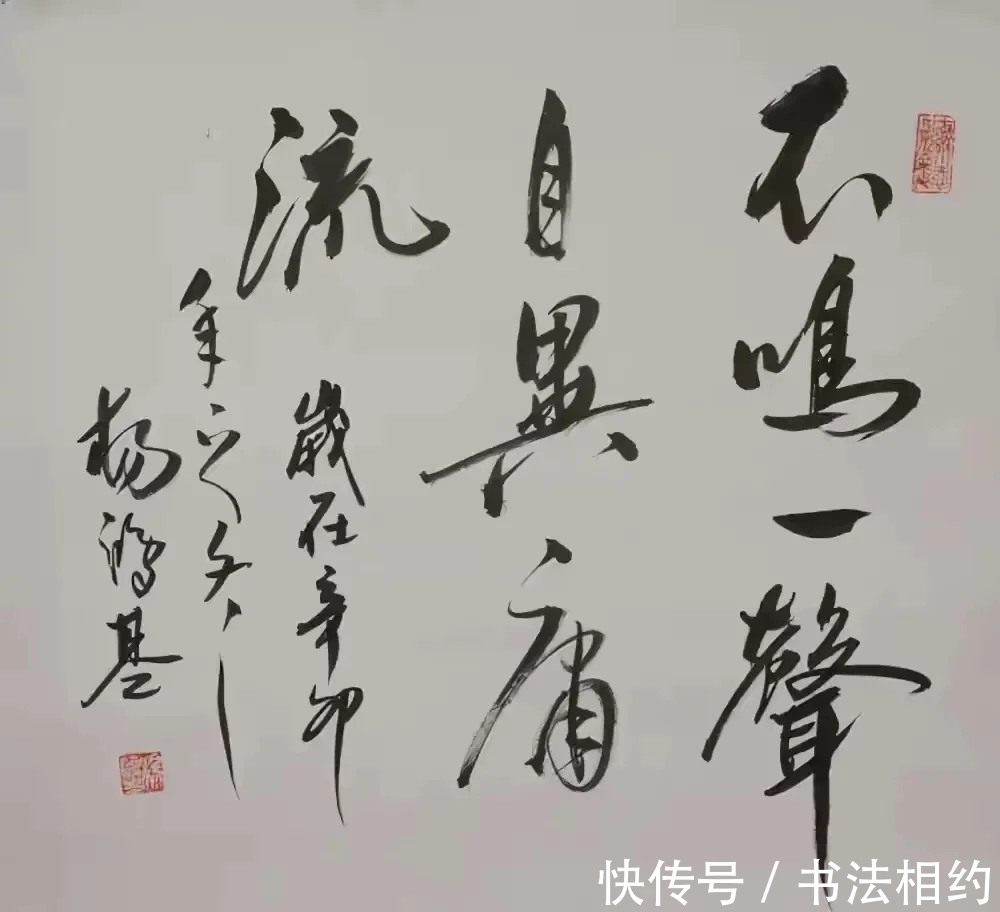 不鳴一聲
自異庸
流
歲在辛卯
年之冬
楊鴻基
快传号 / 书法相约